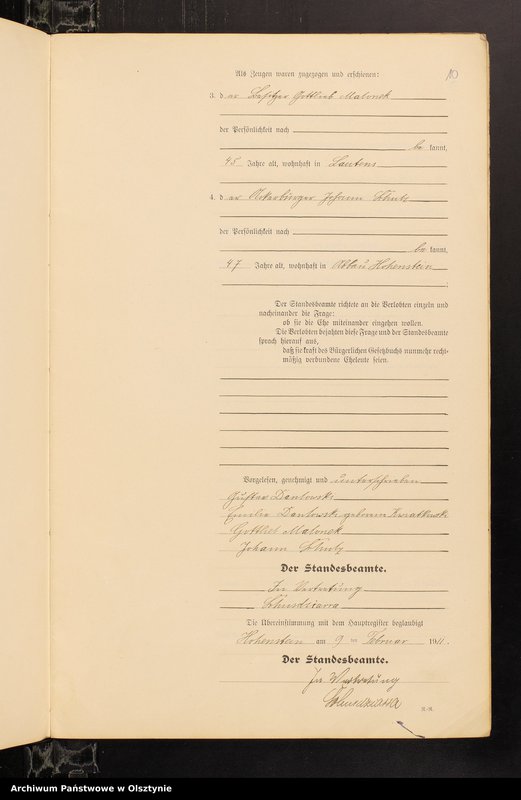 10
Als Zeugen waren zugezogen und erschienen:
3. d er Besitzer Gottlieb Malonek
der Persönlichkeit nach
be kannt,
45 Jahre alt, wohnhaft in Lautens
4. d er Ackerbürger Johann Schulz
der Persönlichkeit nach
be kannt,
47 Jahre alt, wohnhaft in Abbau Hohenstein
Der Standesbeamte richtete an die Verlobten einzeln und
nacheinander die Frage:
ob sie die Ehe miteinander eingehen wollen.
Die Verlobten bejahten diese Frage und der Standesbeamte
sprach hierauf aus,
daß sie kraft des Bürgerlichen Gesetzbuchs nunmehr recht-
mäßig verbundene Eheleute seien.
Vorgelesen, genehmigt und unterschrieben
Gustav Danlowski
Emilie Danlowski geborene Kwiatkowski
Gottlieb Malonek
Johann Schulz
Der Standesbeamte.
In Vertretung
Die Übereinstimmung mit dem Hauptregister beglaubigt
Hohenstein am 9 ten Februar 1911.
Der Standesbeamte.
In Vertretung
Archiwum Państwowe w Olsztynie